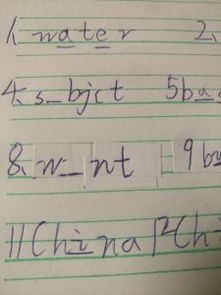 1、water 2、
4、s_bjct 5ba
8、w_nt 9bu
11China 12Ch